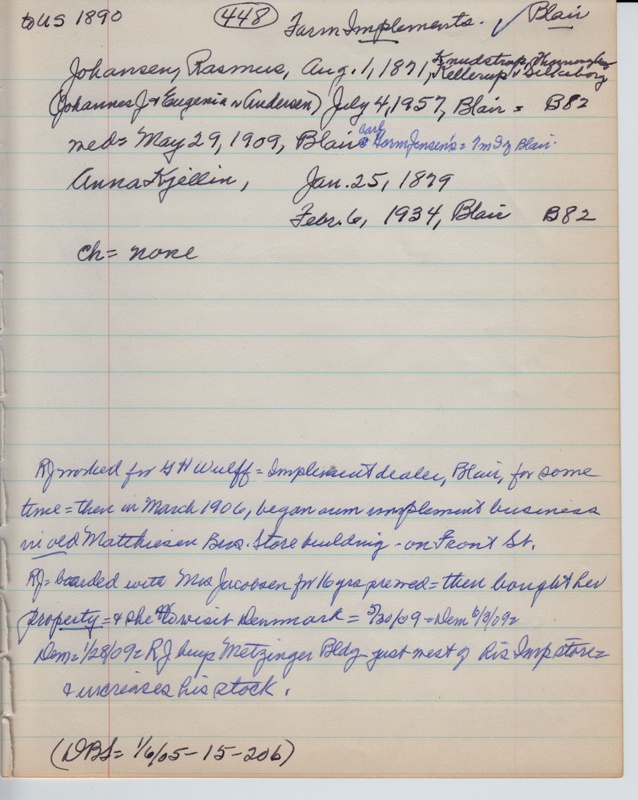 to US 1890 448 Farm Implements. ✓ Blair
Johansen, Rasmus, Aug. 1, 1871, Knudstrup, Thorning
Kellerup v Silkeborg
(Johannes J + Eugenia n Andersen) July 4, 1957, Blair = B82
med = May 29, 1909, Blair @ Jensen's = 7m I of Blair.
Anna Kjellin, Jan. 25, 1879
Febr. 6, 1934, Blair B82
Ch = none
RJ worked for G H Wulff = Implement dealer, Blair, for some
time = then in March 1906, began own implement business
in old Matthiesen Bros. Store building - on Front St.
RJ = boarded with Mrs Jacobsen for 16 yrs premed = then bought her
property = + she to visit Denmark = 5/30/09 = Dem 6/3/09 =
Dem = 1/28/09 = RJ buys Metzinger Bldg just west of his Imp store =
+ increases his stock.
(DBS = 1/6/05 - 15 - 206)